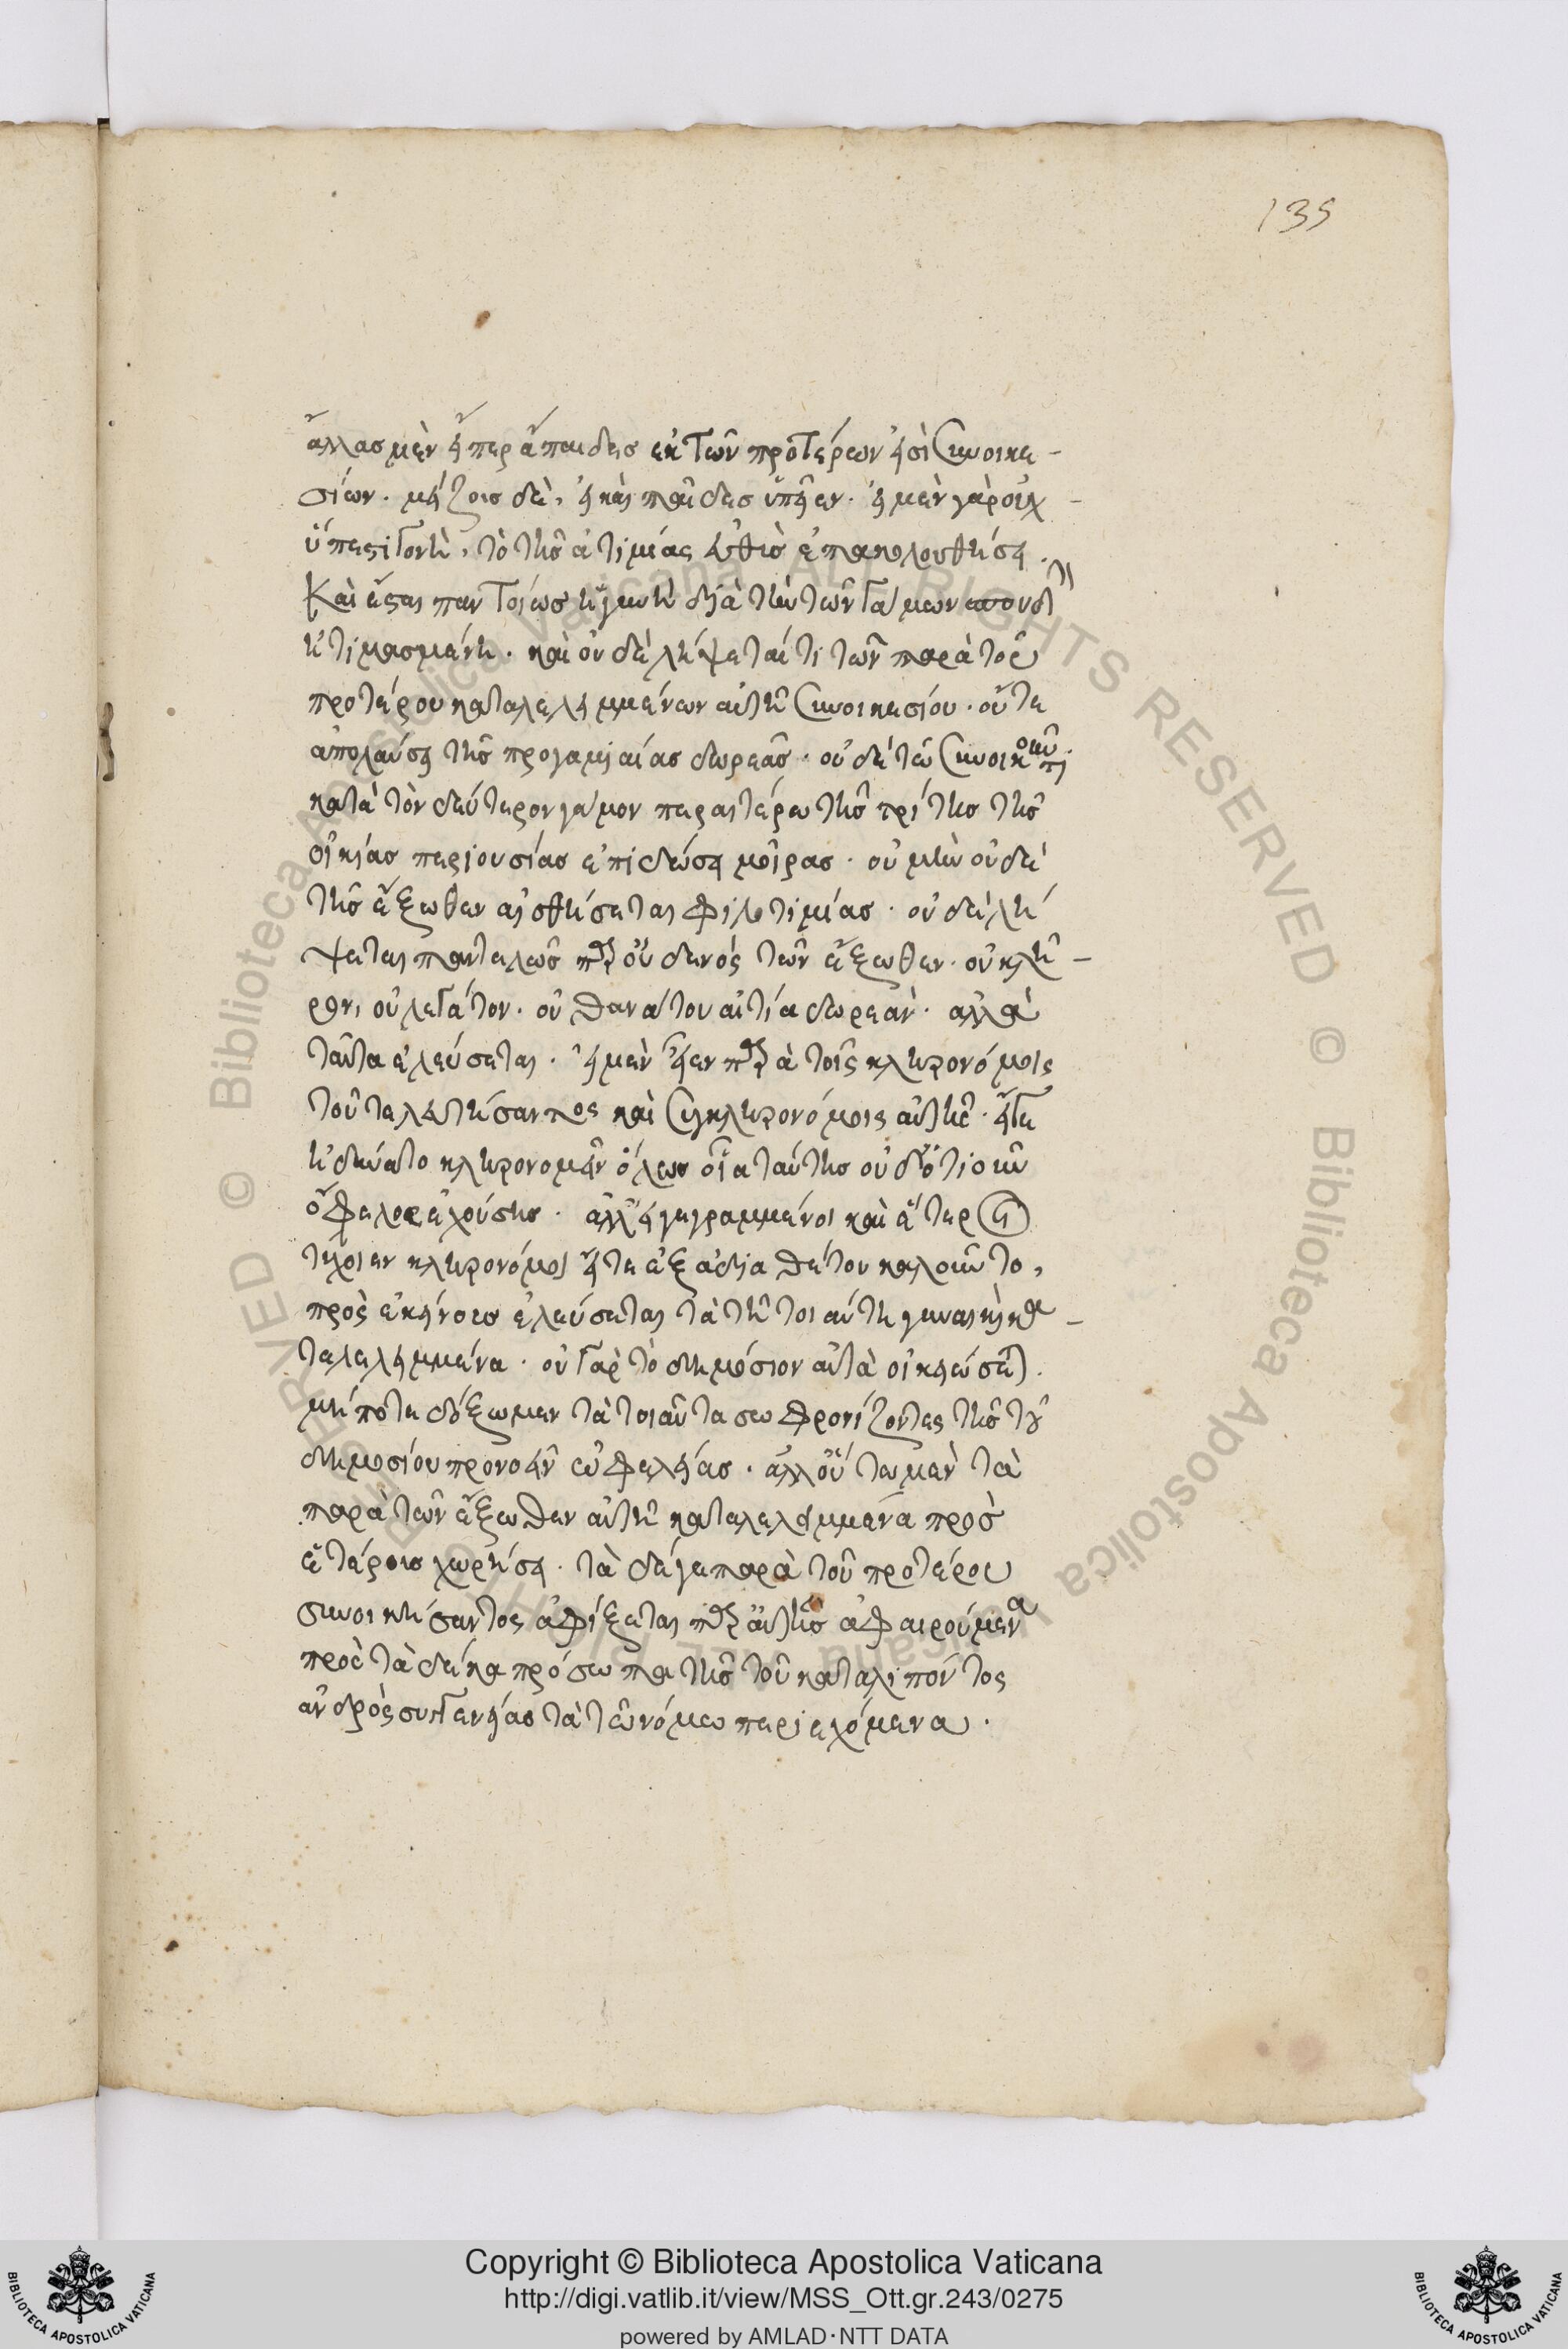 135
ἄλλας μὲν εἴπερ ἄπαιδες ἐκ τῶν προτέρων εἰσὶ συνοικε-
σίων. μείζοις δὲ, εἰ καὶ παῖδες ὑπῆεν. εἰ μὲν γὰρ οὐχ
ὕπεστι γονὴ, τὸ τῆς ἀτιμίας εὐθὺς ἐπακολουθήσει.
Καὶ ἔσται παντοίως ἡ γυνὴ διὰ τὴν τῶν γάμων σπουδὴν
ἠτιμασμένη. καὶ οὐδὲ λήψεταί τι τῶν παρὰ τοῦ
προτέρου καταλελειμμένων αὐτῇ συνοικεσίου. οὔτε
ἀπολαύσει τῆς προγαμιαίας δωρεᾶς. οὐδὲ τῷ συνοικοῦντι
κατὰ τὸν δεύτερον γάμον περαιτέρω τῆς τρίτης τῆς
οἰκίας περιουσίας ἐπιδώσει μοίρας. οὐ μὴν οὐδὲ
τῆς ἔξωθεν αἰσθήσεται φιλοτιμίας. οὐδὲ λή
ψεται παντελῶς παρ οὐδενός τῶν ἔξωθεν. οὐ κλῆ-
ρον, οὐ λεγάτον. οὐ θανάτου αἰτία δωρεὰν. ἀλλὰ
ταῦτα ἐλεύσεται. εἰ μὲν εἶεν παρὰ τοῖς κληρονόμοις
τοῦ τελευτήσαντος καὶ συγκληρονόμοις αὐτῆς. εἴγε
ἠδύνατο κληρονομεῖν ὅλως οἷα ταύτης οὐδ ὁτιοῦν
ὄφελος ἐχούσης. ἀλλ εἰ γεγραμμένοι καὶ ἕτεροι
τύχοιεν κληρονόμοι εἴτε ἐξ ἀδιαθέτου καλοῦντο,
πρὸς ἐκείνους ἐλεύσεται τὰ τῇ τοιαύτῃ γυναικὶ κα-
ταλελειμμένα. οὐ γὰρ τὸ δημόσιον αὐτὰ οἰκειώσεται.
μήποτε δόξωμεν τὰ τοιαῦτα σωφρονίζοντες τῆς τοῦ
δημοσίου προνοεῖν ὠφελείας. ἀλλ οὕτω μὲν τὰ
παρὰ τῶν ἔξωθεν αὐτῇ καταλελειμμένα πρὸς
ἑτέρους χωρήσει. τὰ δέ γε παρὰ τοῦ προτέρου
συνοικήσαντος ἀφίξεται παρ αὐτῆς ἀφαιρούμενα
πρὸς τὰ δέκα πρόσωπα τῆς τοῦ καταλιπόντος
ἀνδρὸς συγγενείας τὰ τῷ νόμω περιεχόμενα.
Copyright © Biblioteca Apostolica Vaticana
http://digi.vatlib.it/view/MSS_Ott.gr.243/0275
powered by AMLAD·NTT DATA
BIBLIOTECA APOSTOLICA VATICANA
BIBLIOTECA APOSTOLICA VATICANA